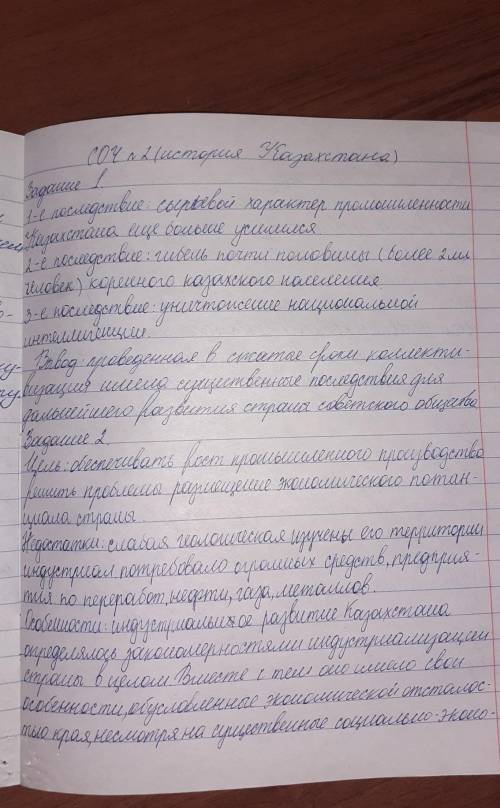 СОЧ №2 (история Казахстана)
Задание 1.
1-е последствие: сырьевой характер промышленности
Казахстана еще больше усилился
2-е последствие: гибель почти половины (более 2 млн
человек) коренного казахского населения.
3-е последствие: уничтожение национальной
интеллигенции.
Вывод: проведенная в сжатые сроки коллекти-
визация имела существенные последствия для
дальнейшего развития страны советского общества
Задание 2.
Цель: обеспечивать рост промышленного производства
решить проблемы размещение экономического потен-
циала страны.
Недостатки: слабая геологическая изучены его территории
индустриал потребовало огромных средств, предприя-
тия по переработ, нефти, газа, металлов.
Особенности: индустриальное развитие Казахстана
определялось закономерностями индустриализации
страны в целом. Вместе с тем оно имело свои
особенности, обусловленные экономической отсталос-
тью края, несмотря на существенные социально-эконо-